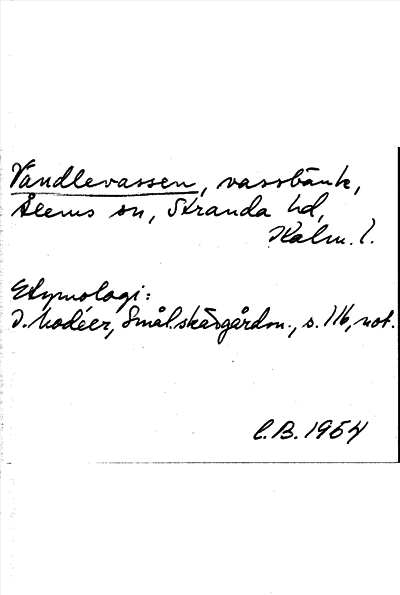 Vandlevassen, vassbänk,
Ålems sn, Stranda hd,
Kalm. l.
Etymologi:
I. Modéer, Smål. skärgårdsn., s. 116, not.
C.B. 1954